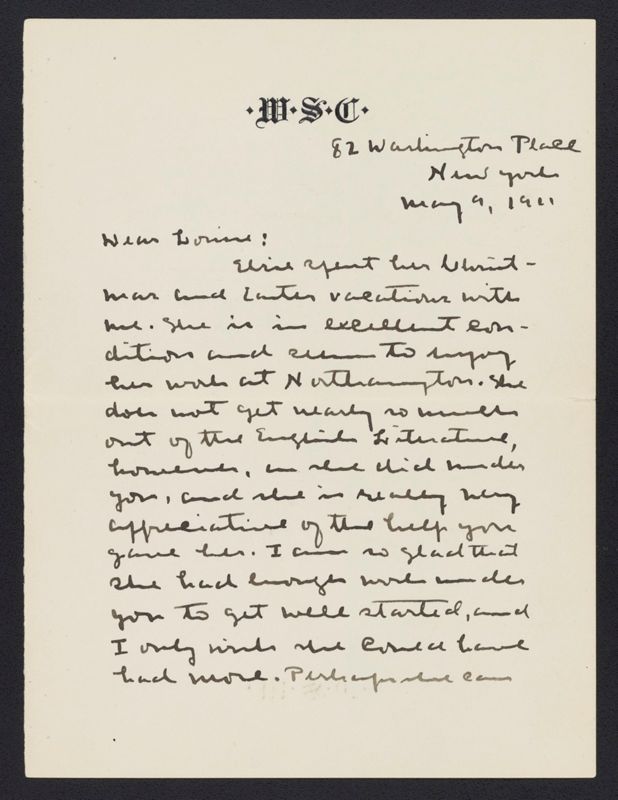 ·W·S·C·
82 Washington Place
New York
May 9, 1911
Dear Louise:
Elsie spent her Christ-
mas and Easter vacations with
me. She is in excellent con-
dition and seems to enjoy
her work at Northampton. She
does not get nearly so much
out of the English Literature,
however, as she did under
you, and she is really very
appreciative of the help you
gave her. I am so glad that
she had enough work under
you to get well started, and
I only wish she could have
had more. Perhaps she can